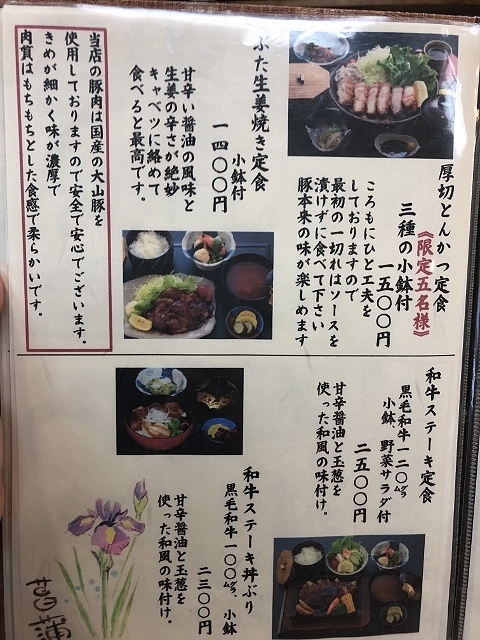 厚切とんかつ定食
《限定五名様》
三種の小鉢付
一五〇〇円
ころもにひと工夫を
しておりますので
最初の一切れはソースを
漬けずに食べて下さい
豚本来の味が楽しめます
ぶた生姜焼き定食
小鉢付
一四〇〇円
甘辛い醤油の風味と
生姜の辛さが絶妙
キャベツに絡めて
食べると最高です。
当店の豚肉は国産の大山豚を
使用しておりますので安全で安心でございます。
きめが細かく味が濃厚で
肉質はもちもちとした食感で柔らかいです。
和牛ステーキ定食
黒毛和牛一二〇㌘
小鉢 野菜サラダ付
二五〇〇円
甘辛醤油と玉葱を
使った和風の味付け。
和牛ステーキ丼ぶり
黒毛和牛一〇〇㌘、小鉢
二三〇〇円
甘辛醤油と玉葱を
使った和風の味付け。
菖蒲